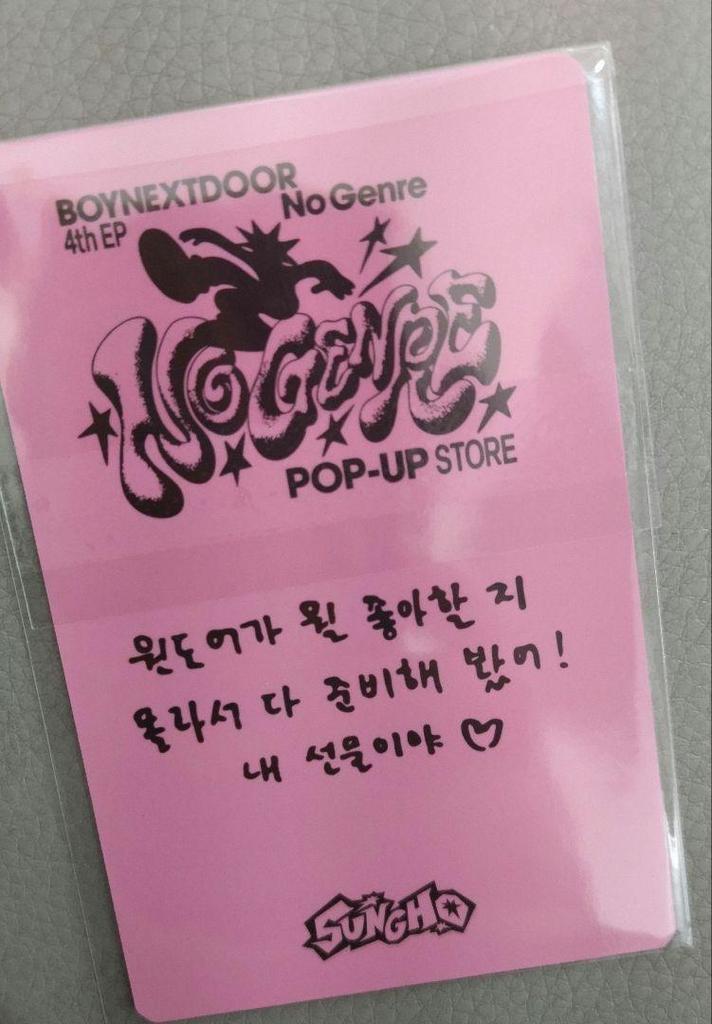 BOYNEXTDOOR
4th EP
No Genre
NO GENRE
POP-UP STORE
원도어가 뭘 좋아할 지
몰라서 다 준비해 봤어!
내 선물이야 ♡
SUNGHO